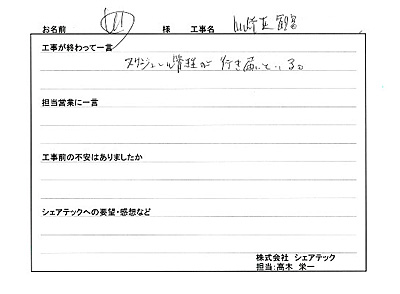 お名前 様 工事名
工事が終わって一言
スケジュール管理が行き届いている。
担当営業に一言
工事前の不安はありましたか
シェアテックへの要望・感想など
株式会社 シェアテック
担当:高木 栄一